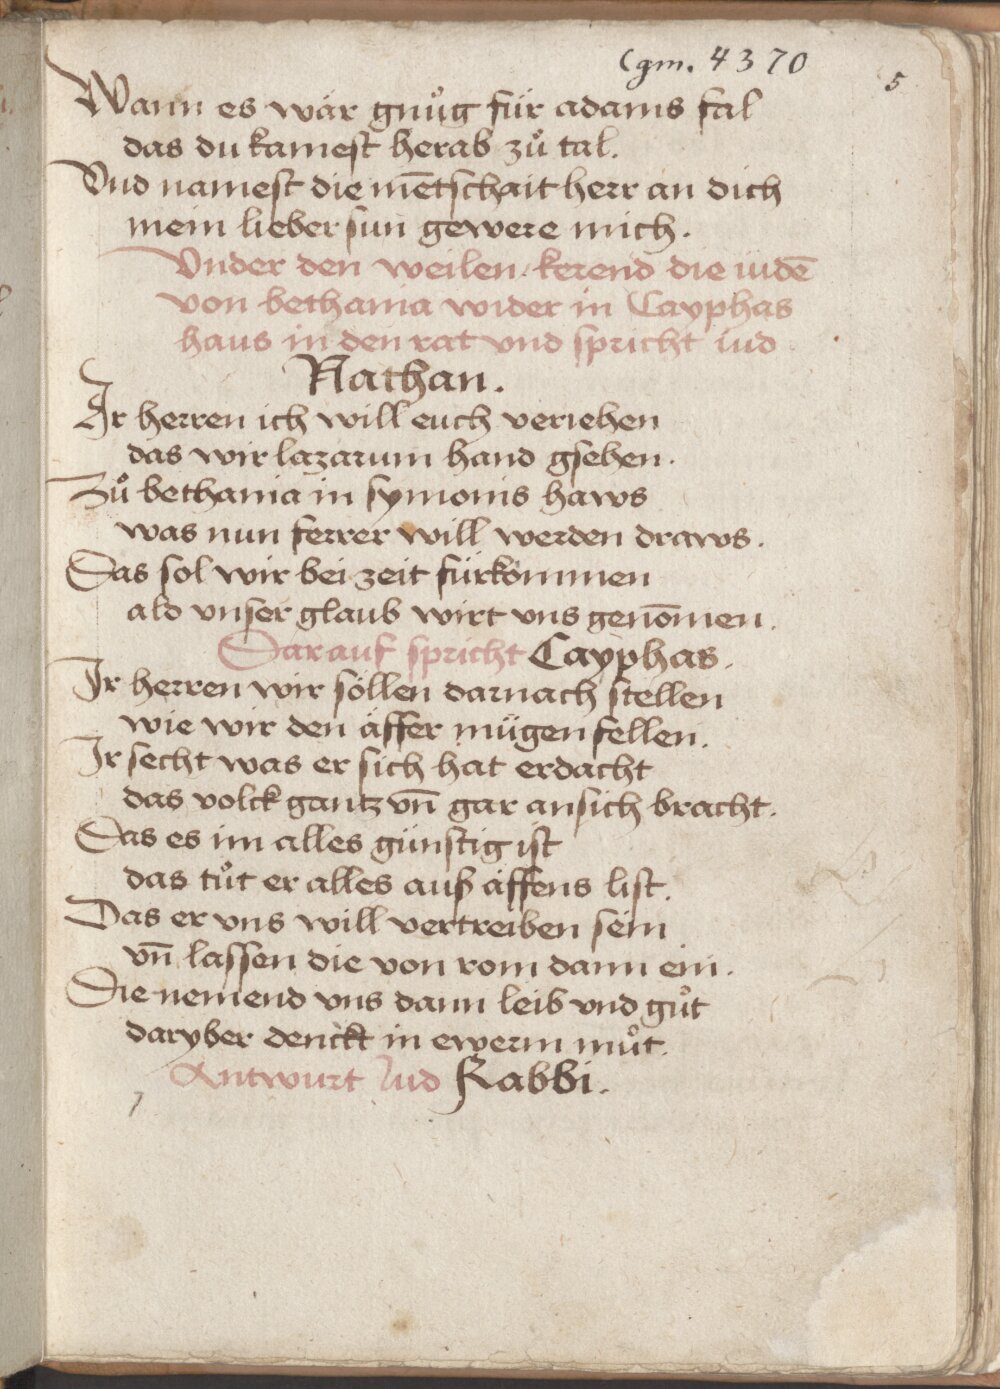 Cgm. 4370
5
Wann es wär gnuͦg für adams fal
das du kamest herab zuͦ tal.
Vnd namest die mētschait herr an dich
mein lieber sun gewere mich.
Vnder den weilen kerend die iudē
von bethania wider in Cayphas
haus in den rat vnd spricht iud
Nathan.
Ir herren ich will euch veriehen
das wir lazarum hand gsehen.
Zuͦ bethania in symonis haws
was nun ferrer will werden draws.
Das sol wir bei zeit fürkommen
ald vnser glaub wirt vns genōmen.
Darauf spricht Cayphas.
Ir herren wir söllen darnach stellen
wie wir den äffer mügen fellen.
Ir secht was er sich hat erdacht
das volck gantz vn̄ gar ansich bracht.
Das es im alles günstig ist
das tuͦt er alles auß äffens list.
Das er vns will vertreiben sein
vn̄ lassen die von rom dann ein.
Die nemend vns dann leib vnd guͦt
daryber denckt in ewerm muͦt.
Antwurt Iud Rabbi.